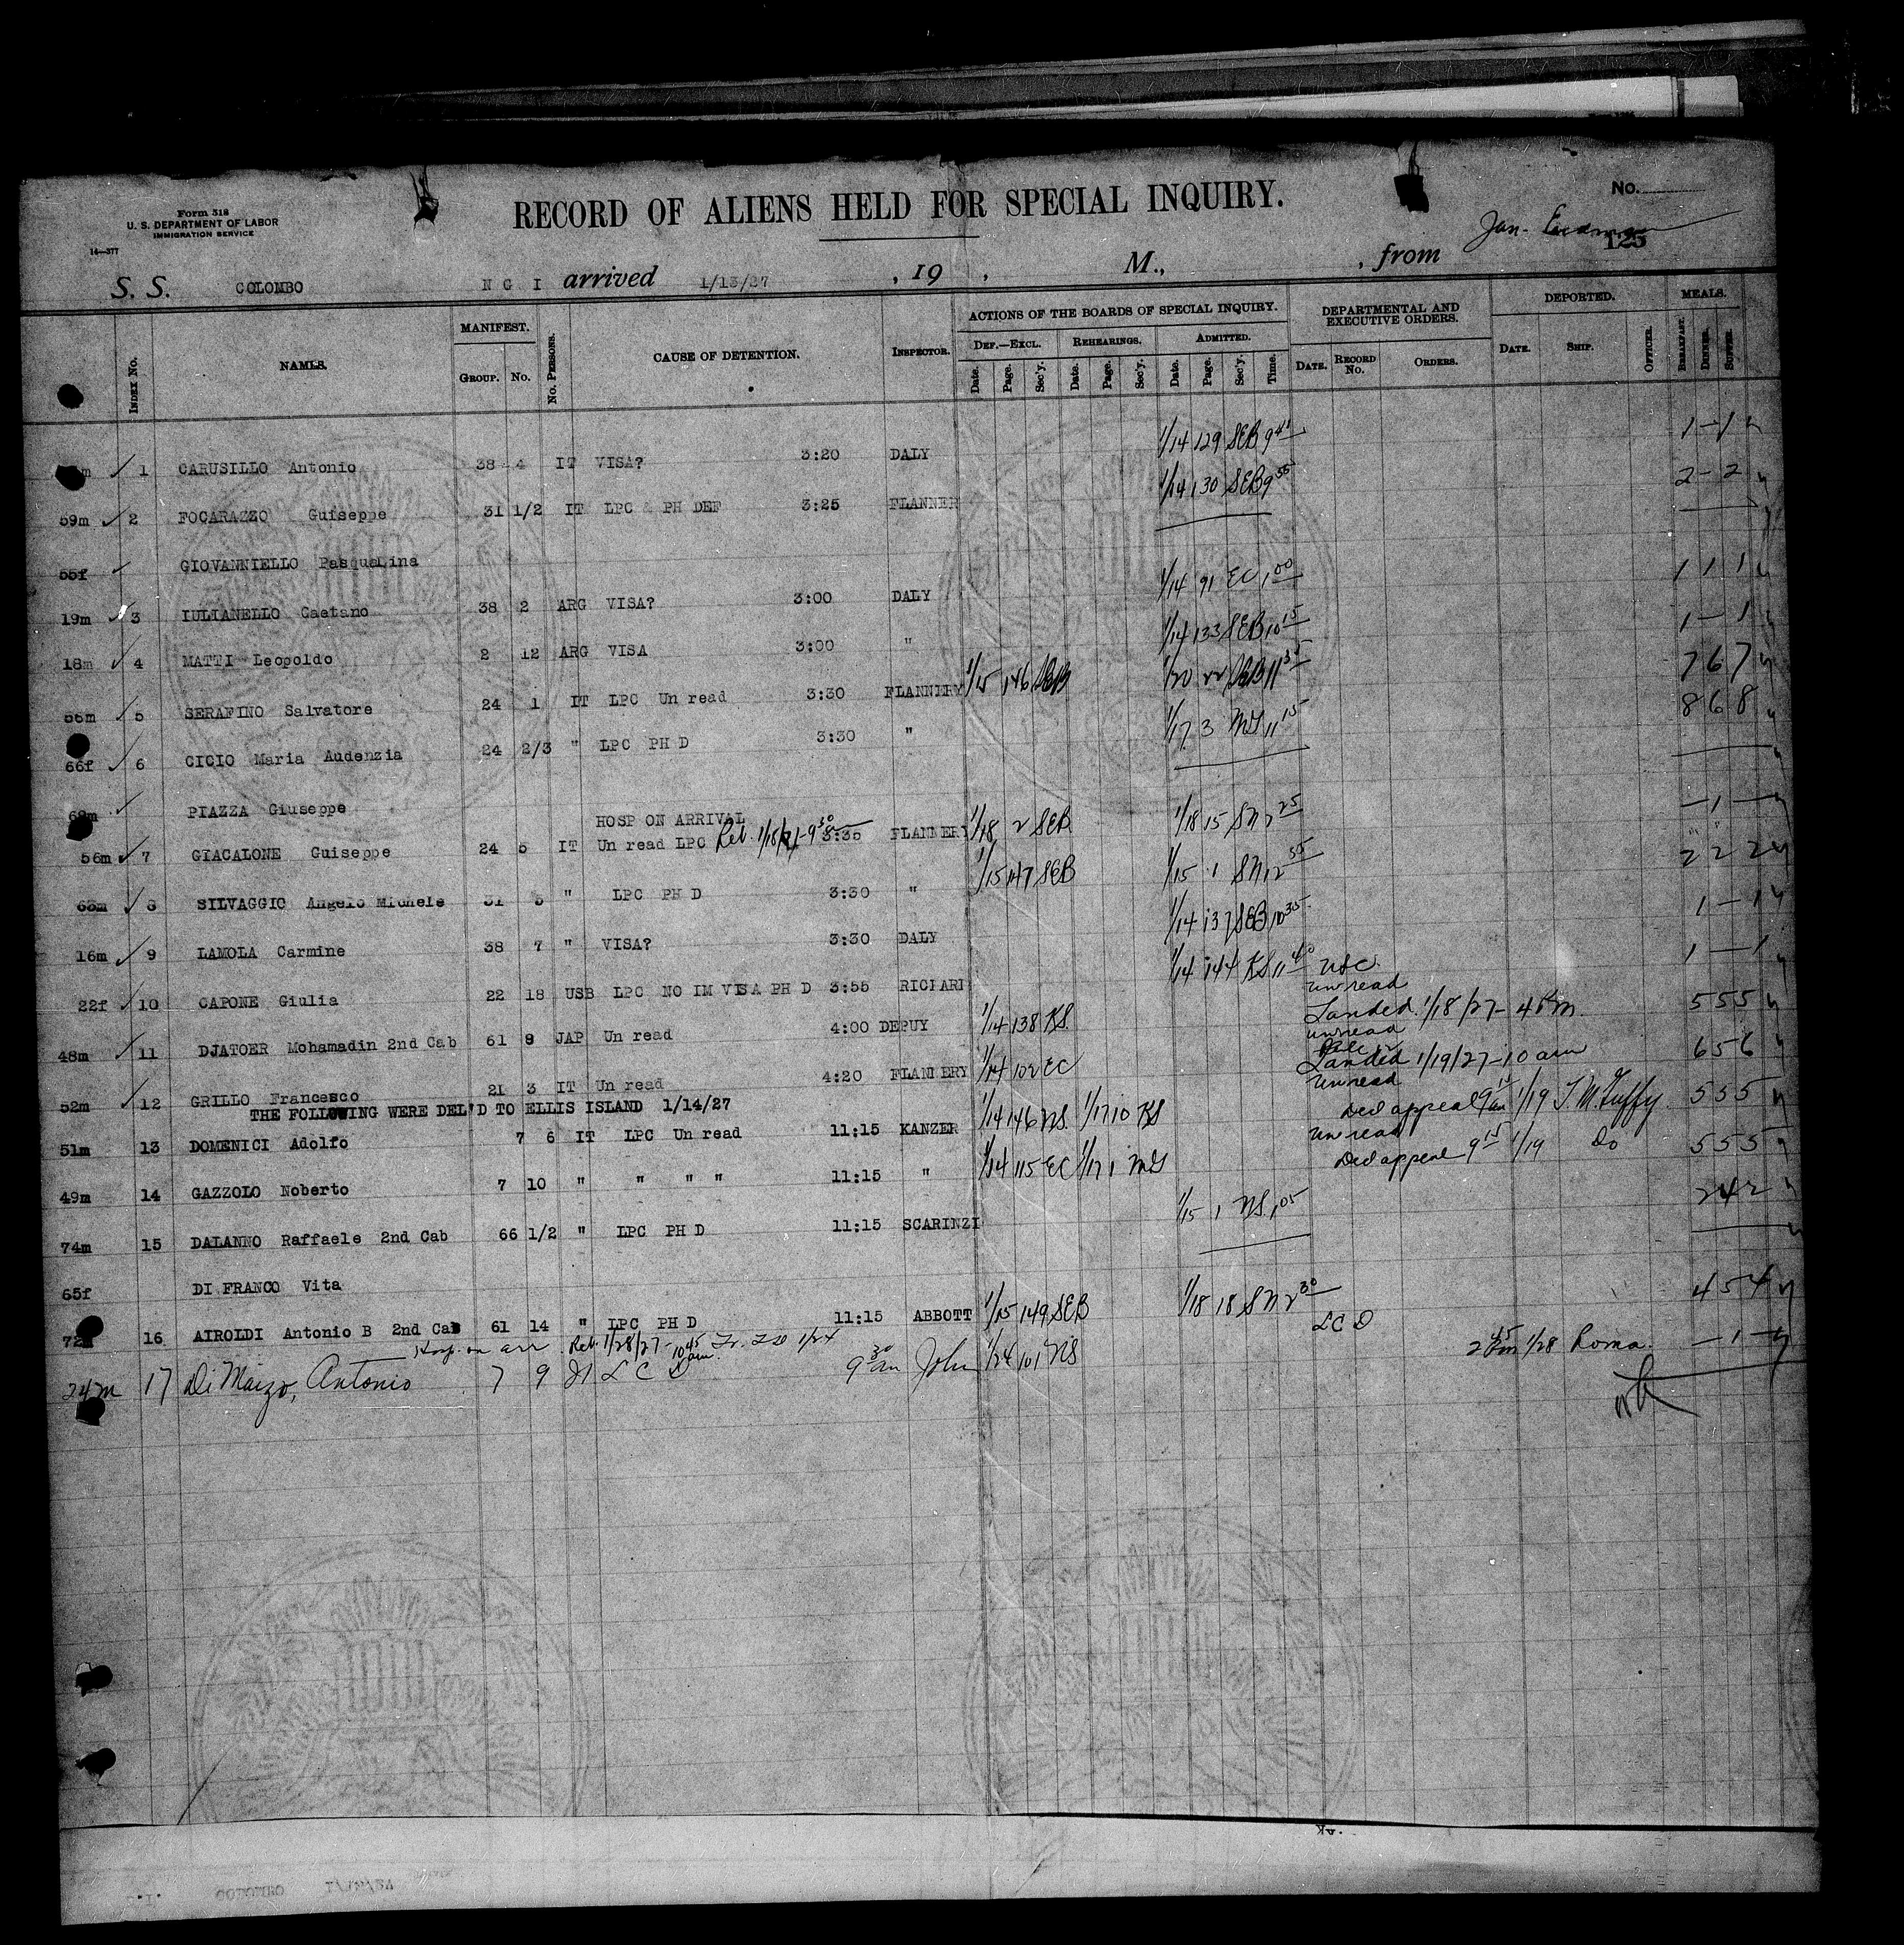 Form 318
U. S. DEPARTMENT OF LABOR
IMMIGRATION SERVICE
14—377
RECORD OF ALIENS HELD FOR SPECIAL INQUIRY.
No.
Jan-
125
S. S. COLOMBO N G I arrived 1/13/27 , 19 , M., , from
INDEX No. NAMES. MANIFEST. GROUP. No. No. PERSONS. CAUSE OF DETENTION. INSPECTOR. ACTIONS OF THE BOARDS OF SPECIAL INQUIRY. DEF.—EXCL. Date. Page. Sec'y. REHEARINGS. Date. Page. Sec'y. ADMITTED. Date. Page. Sec'y. Time. DEPARTMENTAL AND EXECUTIVE ORDERS. DATE. RECORD No. ORDERS. DEPORTED. DATE. SHIP. OFFICER. MEALS. BREAKFAST. DINNER. SUPPER.
m 1 CARUSILLO Antonio 38 4 IT VISA? 3:20 DALY 1/14 129 SEB 9 41 1 - 1
59m 2 FOCARAZZO Guiseppe 31 1/2 IT LPC & PH DEF 3:25 FLANNER 1/14 130 SEB 9 55 2 - 2
55f GIOVANNIELLO Pasqualina
19m 3 IULIANELLO Gaetano 38 2 ARG VISA? 3:00 DALY 1/14 91 EC 1 00 1 1 1
18m 4 MATTI Leopoldo 2 12 ARG VISA 3:00 " 1/14 133 SEB 10 15 1 - 1
56m 5 SERAFINO Salvatore 24 1 IT LPC Un read 3:30 FLANNERY 1/15 146 SEB 1/20 22 SEB 11 35 7 6 7
66f 6 CICIO Maria Audenzia 24 2/3 " LPC PH D 3:30 " 1/17 3 MS 11 15 8 6 8
68m PIAZZA Giuseppe
HOSP ON ARRIVAL
56m 7 GIACALONE Guiseppe 24 5 IT Un read LPC Ret. 1/18/27-9 30 3:35 FLANNERY 1/18 2 SEB 1/18 15 SN 2 25 - 1 -
63m 8 SILVAGGIO Angelo Michele 31 5 " LPC PH D 3:30 " 1/15 147 SEB 1/15 1 SN 12 55 2 2 2
16m 9 LAMOLA Carmine 38 7 " VISA? 3:30 DALY 1/14 137 SEB 10 35 1 - 1
22f 10 CAPONE Giulia 22 18 USB LPC NO IM VISA PH D 3:55 RICHARI 1/14 144 KS 11 40 USC 1 - 1
un read
48m 11 DJATOER Mohamadin 2nd Cab 61 9 JAP Un read 4:00 DEPUY 1/14 138 KS Landed 1/18/27- 4 Pm 5 5 5
unread
52m 12 GRILLO Francesco 21 3 IT Un read 4:20 FLANNERY 1/14 102 EC Landed 1/19/27-10 am 6 5 6
THE FOLLOWING WERE DEL'D TO ELLIS ISLAND 1/14/27
unread
51m 13 DOMENICI Adolfo 7 6 IT LPC Un read 11:15 KANZER 1/14 146 NS 1/17 10 KS Ded appeal 9 15 am 1/19 T. M. Guffy 5 5 5
unread
49m 14 GAZZOLO Noberto 7 10 " " " " 11:15 " 1/14 115 EC 1/17 1 MS Ded appeal 9 15 1/19 Do 5 5 5
74m 15 DALANNO Raffaele 2nd Cab 66 1/2 " LPC PH D 11:15 SCARINZI 1/15 1 NS 1 05 2 4 2
65f DI FRANCO Vita
72 16 AIROLDI Antonio B 2nd Cab 61 14 " LPC PH D 11:15 ABBOTT 1/15 149 SEB 1/18 18 SN 2 30 4 5 4
Hosp. on arr Ret. 1/28/27-10 45 am. 1/24 LCD
24m 17 Di Maizo, Antonio 7 9 It L C D 9 30 am John 1/24 101 NS 2 45 Pm 1/28 Roma. - 1 -